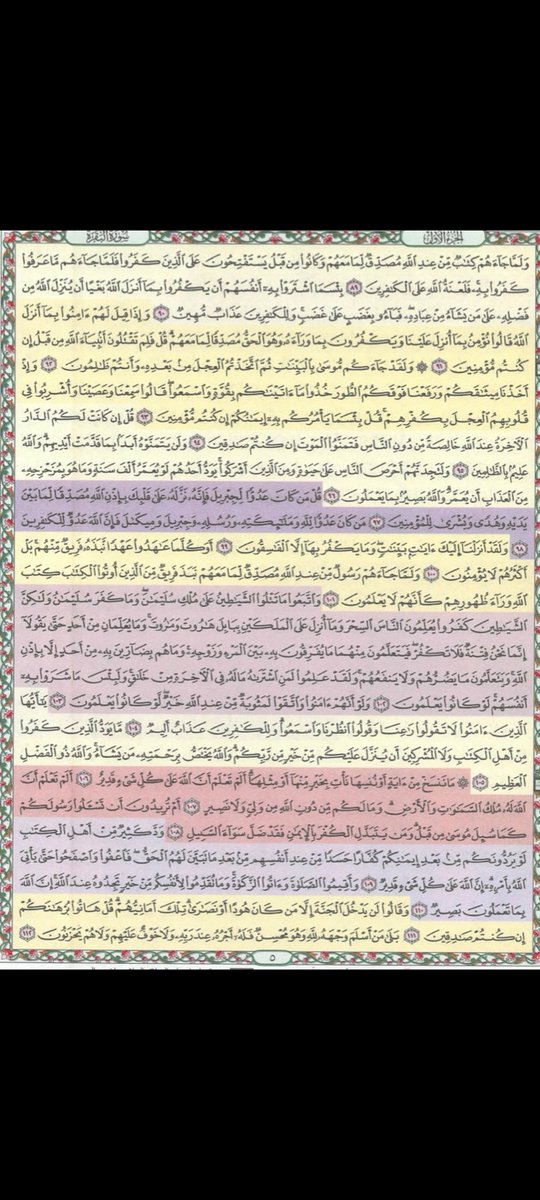 الجزء الأول سورة البقرة
وَلَمَّا جَآءَهُمْ كِتَٰبٌ مِّنْ عِندِ ٱللَّهِ مُصَدِّقٌ لِّمَا مَعَهُمْ وَكَانُوا۟ مِن قَبْلُ يَسْتَفْتِحُونَ عَلَى ٱلَّذِينَ كَفَرُوا۟ فَلَمَّا جَآءَهُم مَّا عَرَفُوا۟
كَفَرُوا۟ بِهِۦ فَلَعْنَةُ ٱللَّهِ عَلَى ٱلْكَٰفِرِينَ ٨٩ بِئْسَمَا ٱشْتَرَوْا۟ بِهِۦٓ أَنفُسَهُمْ أَن يَكْفُرُوا۟ بِمَآ أَنزَلَ ٱللَّهُ بَغْيًا أَن يُنَزِّلَ ٱللَّهُ مِن
فَضْلِهِۦ عَلَىٰ مَن يَشَآءُ مِنْ عِبَادِهِۦ فَبَآءُو بِغَضَبٍ عَلَىٰ غَضَبٍ وَلِلْكَٰفِرِينَ عَذَابٌ مُّهِينٌ ٩٠ وَإِذَا قِيلَ لَهُمْ ءَامِنُوا۟ بِمَآ أَنزَلَ
ٱللَّهُ قَالُوا۟ نُؤْمِنُ بِمَآ أُنزِلَ عَلَيْنَا وَيَكْفُرُونَ بِمَا وَرَآءَهُۥ وَهُوَ ٱلْحَقُّ مُصَدِّقًا لِّمَا مَعَهُمْ قُلْ فَلِمَ تَقْتُلُونَ أَنۢبِيَآءَ ٱللَّهِ مِن قَبْلُ إِن
كُنتُم مُّؤْمِنِينَ ٩١ ۞ وَلَقَدْ جَآءَكُم مُّوسَىٰ بِٱلْبَيِّنَٰتِ ثُمَّ ٱتَّخَذْتُمُ ٱلْعِجْلَ مِنۢ بَعْدِهِۦ وَأَنتُمْ ظَٰلِمُونَ ٩٢ وَإِذْ
أَخَذْنَا مِيثَٰقَكُمْ وَرَفَعْنَا فَوْقَكُمُ ٱلطُّورَ خُذُوا۟ مَآ ءَاتَيْنَٰكُم بِقُوَّةٍ وَٱسْمَعُوا۟ قَالُوا۟ سَمِعْنَا وَعَصَيْنَا وَأُشْرِبُوا۟ فِى
قُلُوبِهِمُ ٱلْعِجْلَ بِكُفْرِهِمْ قُلْ بِئْسَمَا يَأْمُرُكُم بِهِۦٓ إِيمَٰنُكُمْ إِن كُنتُم مُّؤْمِنِينَ ٩٣ قُلْ إِن كَانَتْ لَكُمُ ٱلدَّارُ
ٱلْءَاخِرَةُ عِندَ ٱللَّهِ خَالِصَةً مِّن دُونِ ٱلنَّاسِ فَتَمَنَّوُا۟ ٱلْمَوْتَ إِن كُنتُمْ صَٰدِقِينَ ٩٤ وَلَن يَتَمَنَّوْهُ أَبَدًۢا بِمَا قَدَّمَتْ أَيْدِيهِمْ وَٱللَّهُ
عَلِيمٌۢ بِٱلظَّٰلِمِينَ ٩٥ وَلَتَجِدَنَّهُمْ أَحْرَصَ ٱلنَّاسِ عَلَىٰ حَيَوٰةٍ وَمِنَ ٱلَّذِينَ أَشْرَكُوا۟ يَوَدُّ أَحَدُهُمْ لَوْ يُعَمَّرُ أَلْفَ سَنَةٍ وَمَا هُوَ بِمُزَحْزِحِهِۦ
مِنَ ٱلْعَذَابِ أَن يُعَمَّرَ وَٱللَّهُ بَصِيرٌۢ بِمَا يَعْمَلُونَ ٩٦ قُلْ مَن كَانَ عَدُوًّا لِّجِبْرِيلَ فَإِنَّهُۥ نَزَّلَهُۥ عَلَىٰ قَلْبِكَ بِإِذْنِ ٱللَّهِ مُصَدِّقًا لِّمَا بَيْنَ
يَدَيْهِ وَهُدًى وَبُشْرَىٰ لِلْمُؤْمِنِينَ ٩٧ مَن كَانَ عَدُوًّا لِّلَّهِ وَمَلَٰٓئِكَتِهِۦ وَرُسُلِهِۦ وَجِبْرِيلَ وَمِيكَىٰلَ فَإِنَّ ٱللَّهَ عَدُوٌّ لِّلْكَٰفِرِينَ
٩٨ وَلَقَدْ أَنزَلْنَآ إِلَيْكَ ءَايَٰتٍۭ بَيِّنَٰتٍ وَمَا يَكْفُرُ بِهَآ إِلَّا ٱلْفَٰسِقُونَ ٩٩ أَوَكُلَّمَا عَٰهَدُوا۟ عَهْدًا نَّبَذَهُۥ فَرِيقٌ مِّنْهُم بَلْ
أَكْثَرُهُمْ لَا يُؤْمِنُونَ ١٠٠ وَلَمَّا جَآءَهُمْ رَسُولٌ مِّنْ عِندِ ٱللَّهِ مُصَدِّقٌ لِّمَا مَعَهُمْ نَبَذَ فَرِيقٌ مِّنَ ٱلَّذِينَ أُوتُوا۟ ٱلْكِتَٰبَ كِتَٰبَ
ٱللَّهِ وَرَآءَ ظُهُورِهِمْ كَأَنَّهُمْ لَا يَعْلَمُونَ ١٠١ وَٱتَّبَعُوا۟ مَا تَتْلُوا۟ ٱلشَّيَٰطِينُ عَلَىٰ مُلْكِ سُلَيْمَٰنَ وَمَا كَفَرَ سُلَيْمَٰنُ وَلَٰكِنَّ
ٱلشَّيَٰطِينَ كَفَرُوا۟ يُعَلِّمُونَ ٱلنَّاسَ ٱلسِّحْرَ وَمَآ أُنزِلَ عَلَى ٱلْمَلَكَيْنِ بِبَابِلَ هَٰرُوتَ وَمَٰرُوتَ وَمَا يُعَلِّمَانِ مِنْ أَحَدٍ حَتَّىٰ يَقُولَآ
إِنَّمَا نَحْنُ فِتْنَةٌ فَلَا تَكْفُرْ فَيَتَعَلَّمُونَ مِنْهُمَا مَا يُفَرِّقُونَ بِهِۦ بَيْنَ ٱلْمَرْءِ وَزَوْجِهِۦ وَمَا هُم بِضَآرِّينَ بِهِۦ مِنْ أَحَدٍ إِلَّا بِإِذْنِ
ٱللَّهِ وَيَتَعَلَّمُونَ مَا يَضُرُّهُمْ وَلَا يَنفَعُهُمْ وَلَقَدْ عَلِمُوا۟ لَمَنِ ٱشْتَرَىٰهُ مَا لَهُۥ فِى ٱلْءَاخِرَةِ مِنْ خَلَٰقٍ وَلَبِئْسَ مَا شَرَوْا۟ بِهِۦٓ
أَنفُسَهُمْ لَوْ كَانُوا۟ يَعْلَمُونَ ١٠٢ وَلَوْ أَنَّهُمْ ءَامَنُوا۟ وَٱتَّقَوْا۟ لَمَثُوبَةٌ مِّنْ عِندِ ٱللَّهِ خَيْرٌ لَّوْ كَانُوا۟ يَعْلَمُونَ ١٠٣ يَٰٓأَيُّهَا
ٱلَّذِينَ ءَامَنُوا۟ لَا تَقُولُوا۟ رَٰعِنَا وَقُولُوا۟ ٱنظُرْنَا وَٱسْمَعُوا۟ وَلِلْكَٰفِرِينَ عَذَابٌ أَلِيمٌ ١٠٤ مَّا يَوَدُّ ٱلَّذِينَ كَفَرُوا۟
مِنْ أَهْلِ ٱلْكِتَٰبِ وَلَا ٱلْمُشْرِكِينَ أَن يُنَزَّلَ عَلَيْكُم مِّنْ خَيْرٍ مِّن رَّبِّكُمْ وَٱللَّهُ يَخْتَصُّ بِرَحْمَتِهِۦ مَن يَشَآءُ وَٱللَّهُ ذُو ٱلْفَضْلِ
ٱلْعَظِيمِ ١٠٥ ۞ مَا نَنسَخْ مِنْ ءَايَةٍ أَوْ نُنسِهَا نَأْتِ بِخَيْرٍ مِّنْهَآ أَوْ مِثْلِهَآ أَلَمْ تَعْلَمْ أَنَّ ٱللَّهَ عَلَىٰ كُلِّ شَىْءٍ قَدِيرٌ ١٠٦ أَلَمْ تَعْلَمْ أَنَّ
ٱللَّهَ لَهُۥ مُلْكُ ٱلسَّمَٰوَٰتِ وَٱلْأَرْضِ وَمَا لَكُم مِّن دُونِ ٱللَّهِ مِن وَلِىٍّ وَلَا نَصِيرٍ ١٠٧ أَمْ تُرِيدُونَ أَن تَسْـَٔلُوا۟ رَسُولَكُمْ
كَمَا سُئِلَ مُوسَىٰ مِن قَبْلُ وَمَن يَتَبَدَّلِ ٱلْكُفْرَ بِٱلْإِيمَٰنِ فَقَدْ ضَلَّ سَوَآءَ ٱلسَّبِيلِ ١٠٨ وَدَّ كَثِيرٌ مِّنْ أَهْلِ ٱلْكِتَٰبِ
لَوْ يَرُدُّونَكُم مِّنۢ بَعْدِ إِيمَٰنِكُمْ كُفَّارًا حَسَدًا مِّنْ عِندِ أَنفُسِهِم مِّنۢ بَعْدِ مَا تَبَيَّنَ لَهُمُ ٱلْحَقُّ فَٱعْفُوا۟ وَٱصْفَحُوا۟ حَتَّىٰ يَأْتِىَ
ٱللَّهُ بِأَمْرِهِۦٓ إِنَّ ٱللَّهَ عَلَىٰ كُلِّ شَىْءٍ قَدِيرٌ ١٠٩ وَأَقِيمُوا۟ ٱلصَّلَوٰةَ وَءَاتُوا۟ ٱلزَّكَوٰةَ وَمَا تُقَدِّمُوا۟ لِأَنفُسِكُم مِّنْ خَيْرٍ تَجِدُوهُ عِندَ ٱللَّهِ إِنَّ ٱللَّهَ
بِمَا تَعْمَلُونَ بَصِيرٌ ١١٠ وَقَالُوا۟ لَن يَدْخُلَ ٱلْجَنَّةَ إِلَّا مَن كَانَ هُودًا أَوْ نَصَٰرَىٰ تِلْكَ أَمَانِيُّهُمْ قُلْ هَاتُوا۟ بُرْهَٰنَكُمْ
إِن كُنتُمْ صَٰدِقِينَ ١١١ بَلَىٰ مَنْ أَسْلَمَ وَجْهَهُۥ لِلَّهِ وَهُوَ مُحْسِنٌ فَلَهُۥٓ أَجْرُهُۥ عِندَ رَبِّهِۦ وَلَا خَوْفٌ عَلَيْهِمْ وَلَا هُمْ يَحْزَنُونَ ١١٢
٥